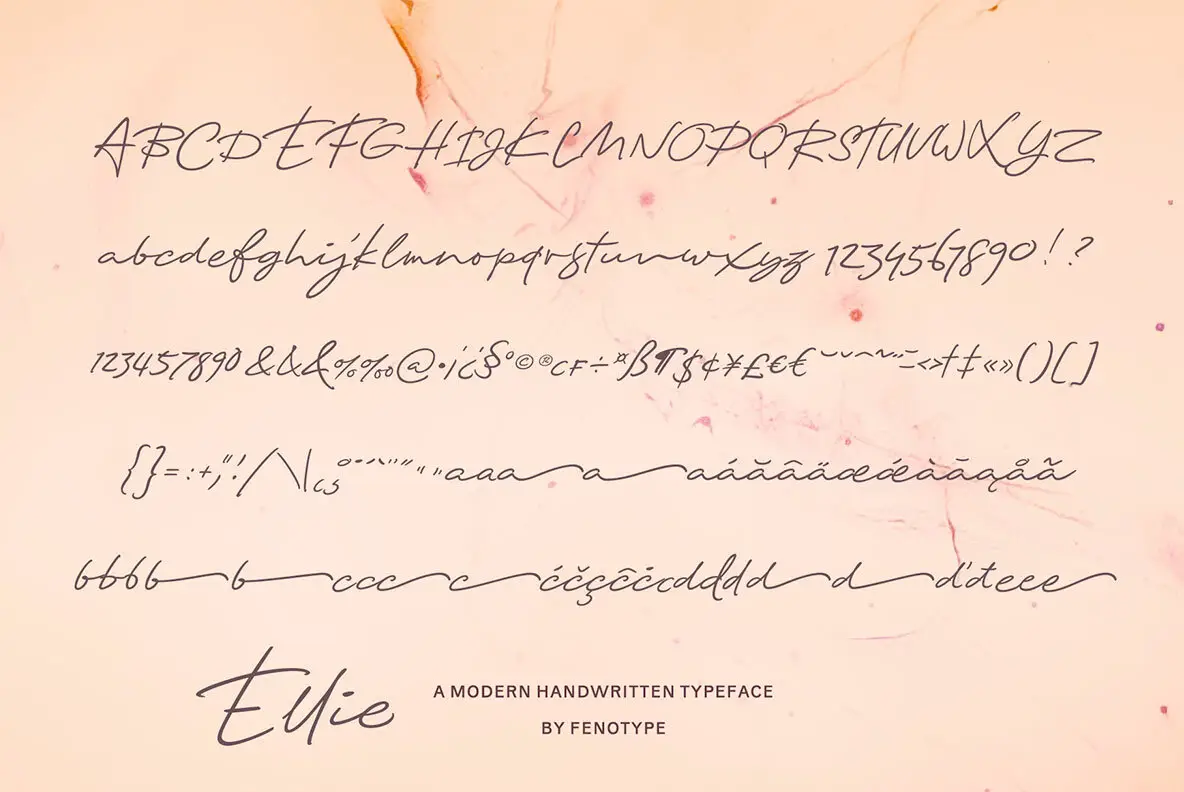 ABCDEFGHIJKLMNOPQRSTUVWXYZ
abcdefghijklmnopqrstuvwxyz 1234567890!?
1234567890&&&%‰@•¡¿§°©®CF÷¤ß¶$¢¥£€€˘˘ˆ˜¨¯<>†‡«»()[]
{}=:+;"!/\|aaaaaáăâäæǽàāąåã
bbbbbccccćčçĉċcdddddďđeee
Ellie
A MODERN HANDWRITTEN TYPEFACE
BY FENOTYPE